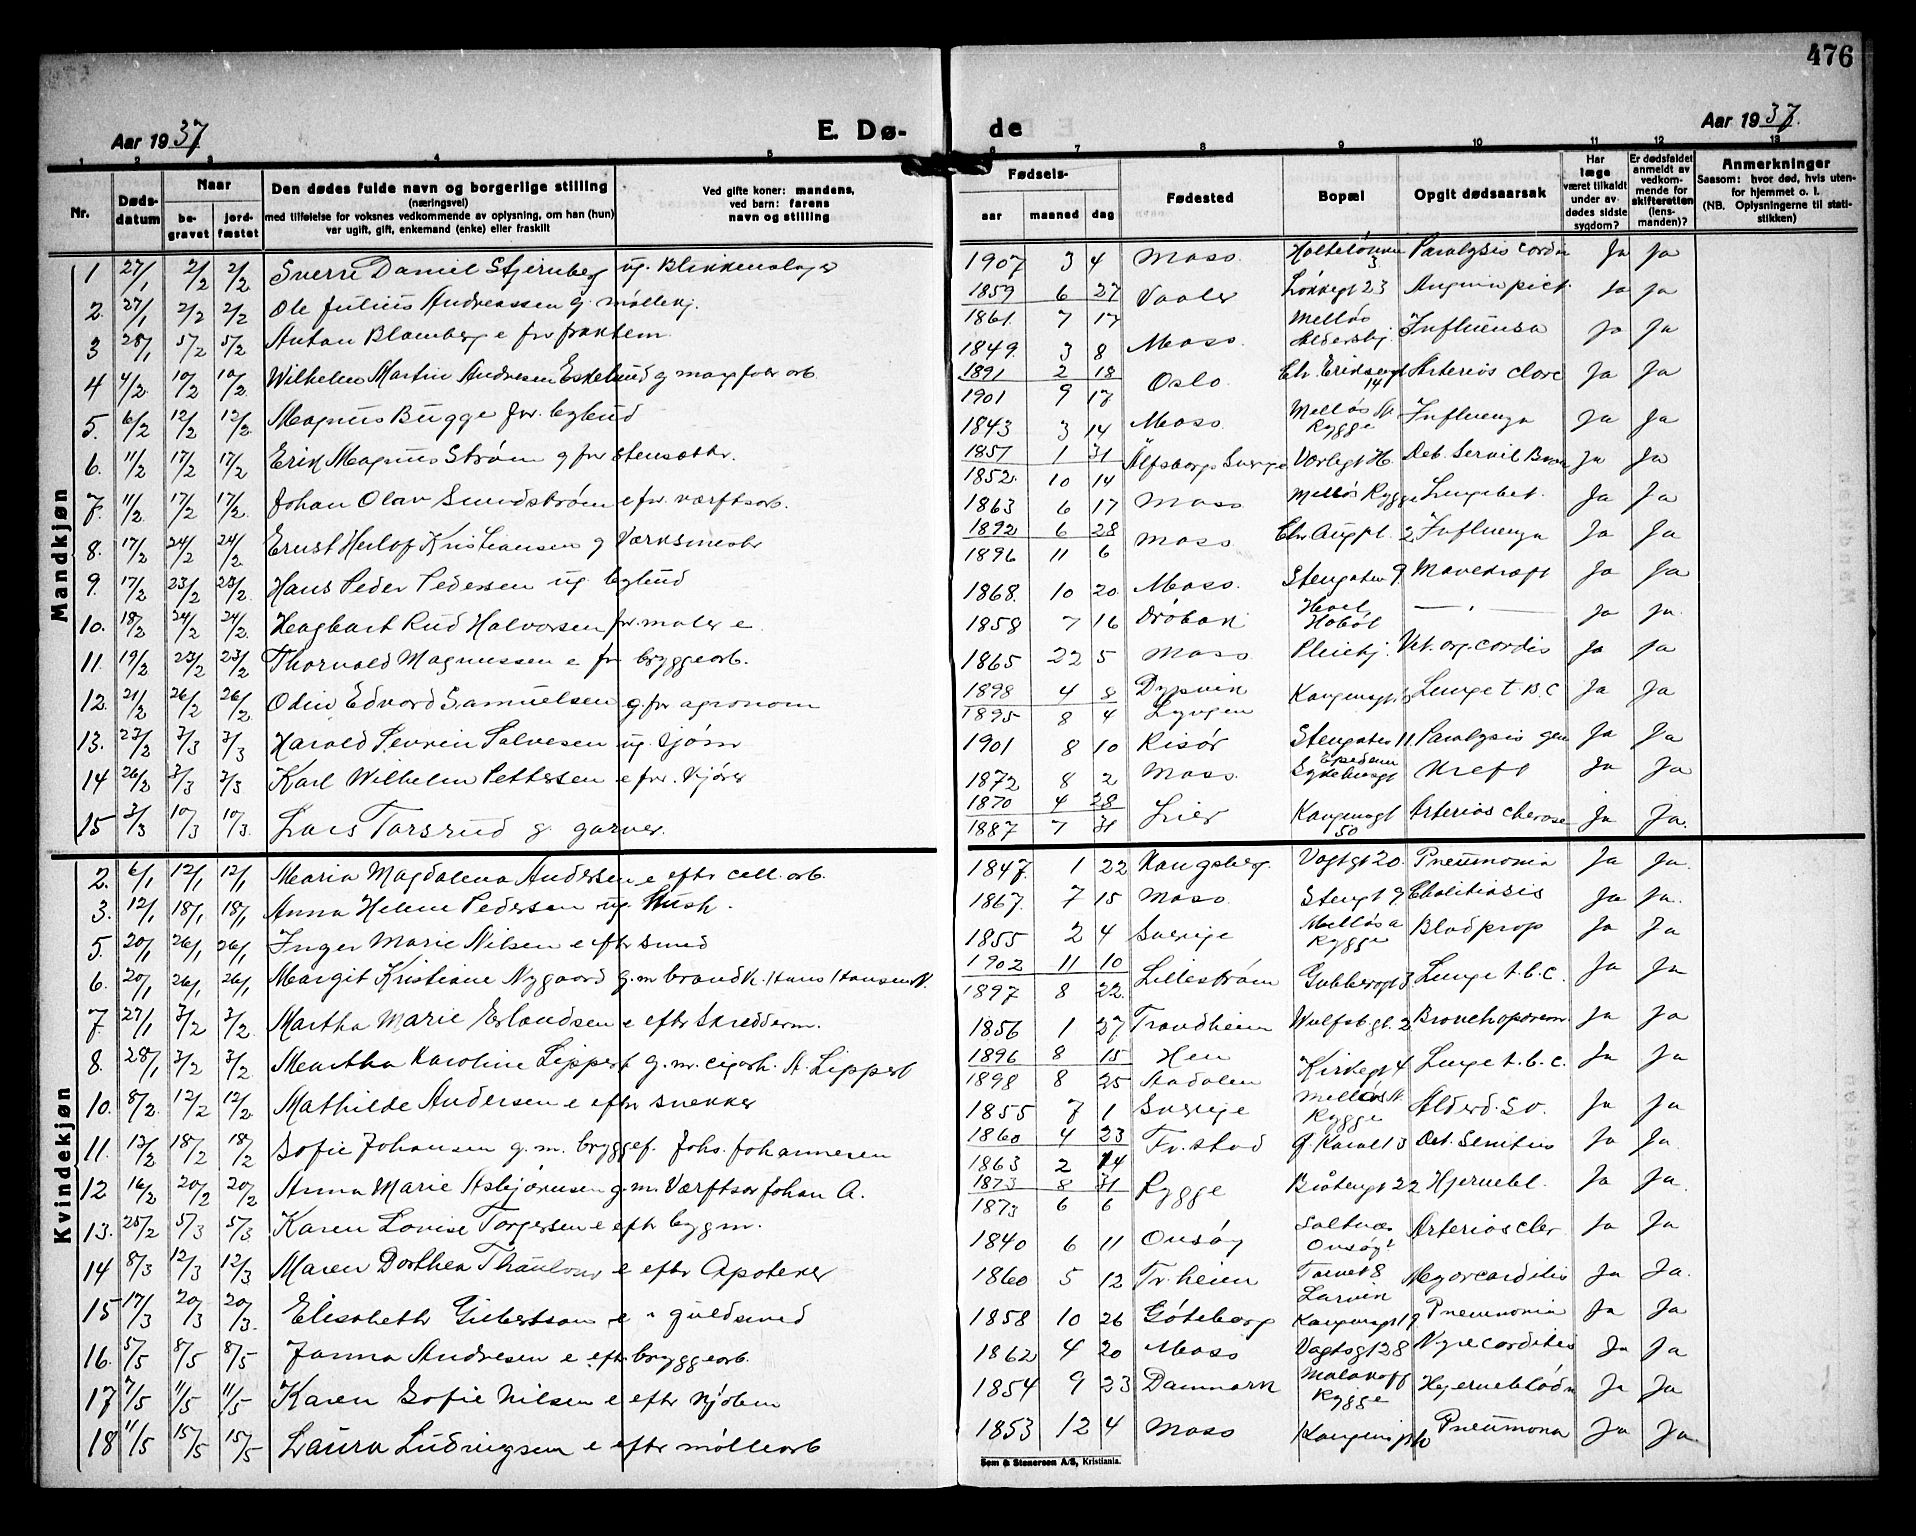 476
Aar 1937 E. Dø- de Aar 1937.
1 2 3 4 5 6 7 8 9 10 11 12 13
Nr. Døds-datum Naar be-gravet jord-fæstet Den dødes fulde navn og borgerlige stilling (næringsvei) med tilføielse for voksnes vedkommende av oplysning, om han (hun) var ugift, gift, enkemand (enke) eller fraskilt Ved gifte koner: mandens, ved barn: farens navn og stilling Fødsels- aar maaned dag Fødested Bopæl Opgit dødsaarsak Har læge været tilkaldt under av-dødes sidste sygdom? Er dødsfaldet anmeldt av vedkom-mende for skifteretten (lens-manden)? Anmerkninger Saasom: hvor død, hvis uten-for hjemmet o. l. (NB. Oplysningerne til stati-stikken)
Mandkjøn
1 27/1 2/2 2/2 Sverre Daniel Stjernberg ug. Blikkenslager 1907 3 4 Moss 3 Paralysis cordis Ja Ja
2. 27/1 2/2 2/2 Ole Julius Andreassen g. møllekj. 1859 6 27 Vaaler Løkkegt 23 Angina pict. Ja Ja
1861. 7 17
3 28/1 5/2 5/2 Anton Blomberg e fhv 1849. 3 8 Moss. Melløs Influensa Ja Ja
4 4/2 10/2 10/2 Wilhelm Martin Andresen Eskelund g 1891 2 18 Oslo. Chr. Eriksensgt 14 Ja Ja
1901 9 17
5. 6/2 12/2 12/2. Magnus Bugge fhv. bybud 1843 3 14 Moss. Melløs Rygge Influenza Ja Ja
6. 11/2 17/2 17/2 Erik Magnus Strøm g fhv stensettr. 1857 1 31 Älfsborgs Sverige Deb. Ja Ja
1852. 10 14
7. 11/2 17/2 17/2. Johan Olav Sundstrøm e fhv. værftsarb. 1863 6 17 Moss Melløs Rygge Lungebet. Ja Ja
8. 17/2 24/2 24/2. Ernst Herlof Kristiansen g Værksmester 1892 6 28 Moss. 2 Influenza Ja Ja
1896 11 6
9. 17/2 23/2 23/2. Hans Peder Pedersen ug. bybud 1868. 10 20. Moss. Stengaten 9 Mavekræft Ja Ja
10. 18/2 24/2 24/2. Hagbart Rud Halvorsen fhv. maler e. 1858 7 16 Drøbak Hobøl — " — Ja Ja.
11. 19/2 23/2 23/2 Thorvald Magnussen e fhv bryggearb. 1865 22 5 Moss. Pleiehj. Vit. org. cordis Ja Ja
12. 21/2 26/2 26/2. Odin Edvard Samuelsen g. fhv agronom 1898 4 8 Dypvik Lyngen Kongensgt Lunge t. B. C Ja Ja
1895 8 4
13. 27/2 3/3 3/3 Harald Severin Salvesen ug. sjøm 1901 8 10 Risør Stengaten 11 Paralysis gen Ja Ja
14 26/2 3/3 3/3 Karl Wilhelm Pettersen e fhv. kjører 1872 8 2 Moss. Epidemi Sykehusgt Kreft Ja Ja
15 3/3 10/3 10/3. Lars Torsrud g garver. 1870 4 28 Lier Kongensgt 50 Ja Ja.
1887 7 31
Kvindekjøn
2. 6/1 12/1 12/1 Maria Magdalena Andersen e efter cell. arb. 1847. 1 22 Kongsberg. Vogtsgt 20. Pneumonia Ja Ja.
3. 12/1 18/1 18/1 Anna Helene Pedersen ug. Hush. 1867. 7 15 Moss. Stengt 9 Cholitiasis Ja Ja.
5. 20/1 26/1 26/1 Inger Marie Nilsen e efter smed 1855 2 4 Sverige Melløs a Rygge Blodprop Ja Ja
6. 20/1 26/1 26/1 Margit Kristiane Nygaard g. m brandk. Hans Hansen N. 1902 11 10 Lillestrøm Gubberogt 3 Lunge t. b. C. Ja Ja
1897 8 22.
7. 27/1 3/2 3/2. Martha Marie Erlandsen e efter skredderm. 1856 1 27 Trondheim Wulfsb.gt. 2 Ja Ja
8. 28/1 3/2 3/2. Martha Karoline Lippert g. m. cigarh. A. Lippert 1896 8 15 Hen Aadalen Kirkegt 4 Lunge t. b. c. Ja Ja
1898 8 25
10. 8/2 12/2 12/2 Mathilde Andersen e efter snekker 1855 7 1 Sverige Melløs Rygge Alderd. Sv. Ja Ja
11. 13/2 18/2 18/2 Sofie Johansen g. m. bryggef. Johs. Johannesen 1860 4 23 Fr.stad 3 Ja Ja.
1863 2 14
12 16/2 20/2 20/2 Anna Marie Asbjørnsen g. m. Værftsar Johan A. 1873 8 31 Rygge 22 Hjernebl. Ja Ja.
1873 6 6
13. 25/2 5/3 5/3. Karen Lovise Torgersen e efter bygm. 1840 6 11 Onsøy Saltnæs Onsøy Arterioscler Ja Ja
14 8/3 12/3 12/3 Maren Dorthea Thaulow e efter Apoteker 1860 5 12 Tr. heim Torvet 8 Larvik Myocarditis Ja Ja.
15 17/3 20/3 20/3. Elisabeth Gilbertson e " guldsmed 1858 10 26 Göteborg Kongensgt 19 Pneumonia Ja Ja
16. 5/5 8/5 8/5 Janna Andresen e efter bryggearb. 1862 4 20 Moss Vogtsgt 28 Ja Ja
17 7/5 11/5 11/5 Karen Sofie Nilsen e efter kjøbm 1854 9 23 Danmark Malakoff Rygge Hjerneblødn Ja Ja
18 11/5 15/5 15/5 Laura Ludvigsen e efter møllearb 1853 12 4 Moss Kongensgt Pneumona Ja Ja.
Sem & Stenersen A/S, Kristiania.